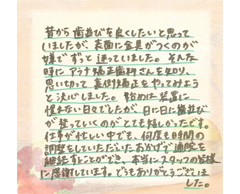 昔から歯並びを良くしたいと思って
いましたが、表面に金具がつくのが
嫌でずっと迷っていました。そんな
時にアラナ矯正歯科さんを知り、
思い切って裏側矯正をやってみよう
と決心しました。始めは装置に
慣れない日々でしたが、日に日に歯並び
が整っていくのがとても嬉しかったです。
仕事が忙しい中でも、何度も時間の
調整をしていただいたおかげで通院を
継続することができ、本当にスタッフの皆様
に感謝しています。どうもありがとうございま
した。